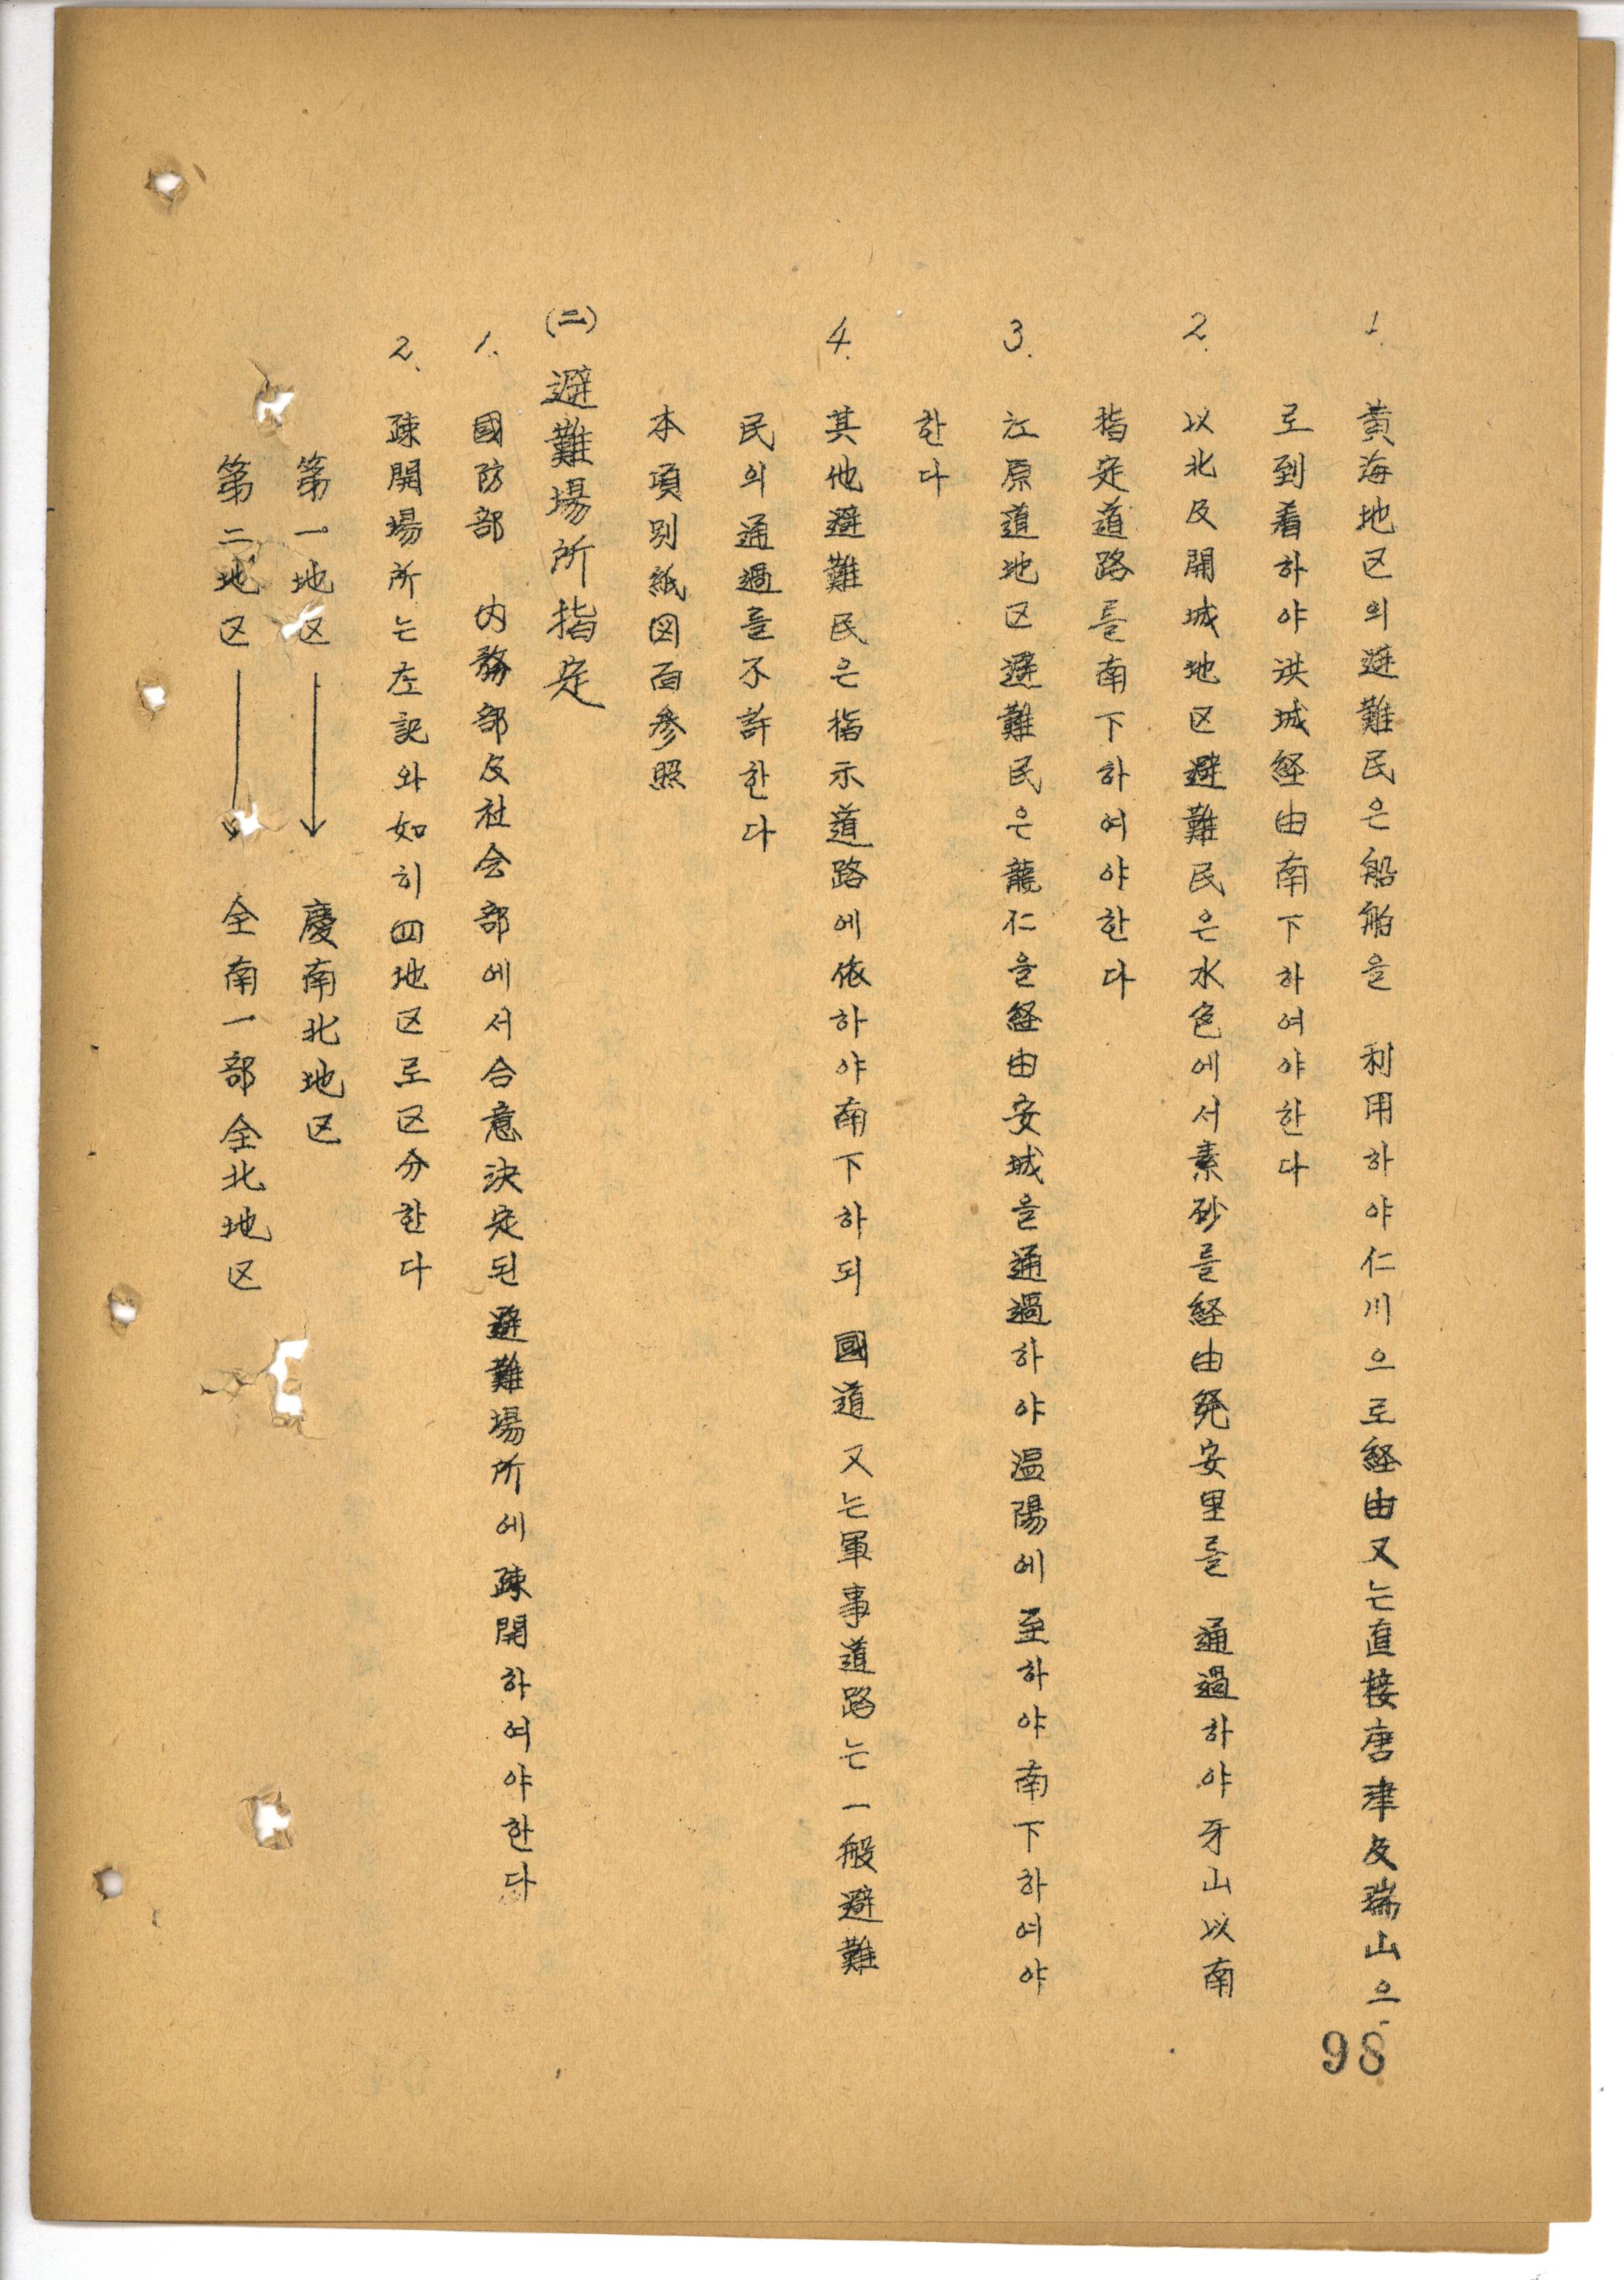 1. 黃海地区의避難民은船舶을 利用하야仁川으로経由又는直接唐津及瑞山으
로到着하야洪城経由南下하여야한다
2. 以北及開城地区避難民은水色에서素砂를経由発安里를 通過하야牙山以南
指定道路를南下하여야한다
3. 江原道地区避難民은龍仁을経由安城을通過하야温陽에至하야南下하여야
한다
4. 其他避難民은指示道路에依하야南下하되 國道又는軍事道路는一般避難
民의通過를不許한다
本項別紙図面参照
(二) 避難場所指定
1. 國防部 内務部及社会部에서合意決定된避難場所에疎開하여야한다
2. 疎開場所는左記와如히四地区로区分한다
第一地区 → 慶南北地区
第二地区 → 全南一部全北地区
98